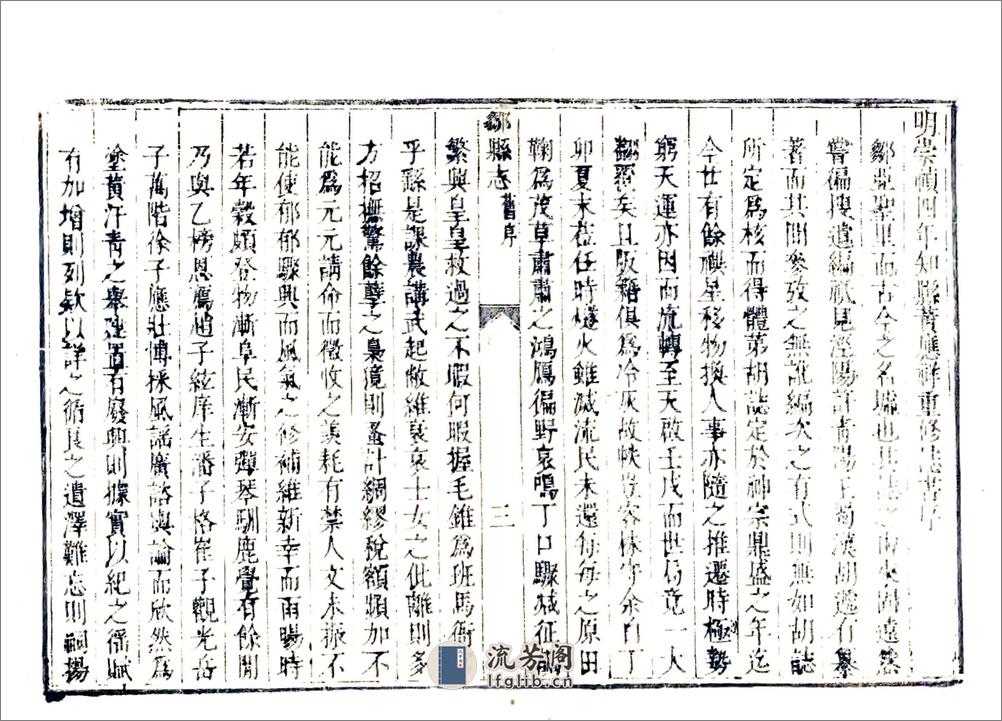 明崇禎四年知縣黃應祥重修誌書序
鄒蓋聖里而古今之名壤也其誌之由來尚遠然
嘗徧搜遺編祇見涇陽許青陽王蜀漢胡遞有纂
著而其間參攷之無訛編次之有式則無如胡誌
所定為核而得體第胡誌定於神宗鼎盛之年迄
今廿有餘禩星移物換人事亦隨之推遷時極勢
窮天運亦因而流轉至天啟壬戌而世局竟一大
翻覆矣且版籍俱為冷灰故帙豈容株守余自丁
卯夏末蒞任時燧火雖滅流民未還每每之原田
鞠為茂草肅肅之鴻鴈徧野哀鳴丁口驟減征調
鄒縣志 舊序 三
繁興皇皇救過之不暇何暇握毛錐為班馬衙
乎繇是課農講武起敝維衰哀士女之仳離則多
方招撫驚餘孽之梟獍則蚤計綢繆稅額頻加不
能為元元請命而徵收之羨耗有禁人文未振不
能使郁郁驟興而風氣之修補維新幸而雨暘時
若年穀頗登物漸阜民漸安彈琴馴鹿覺有餘閒
乃與乙榜恩薦趙子絃庠生潘子格崔子觀光岳
子萬階佟子應壯博採風謡廣諮輿論而欣然為
塗黃汗青之舉建置有廢興則據實以紀之徭賦
有加增則列欵以詳之循良之遺澤難忘則嗣揚
流芳阁
lfglib.cn